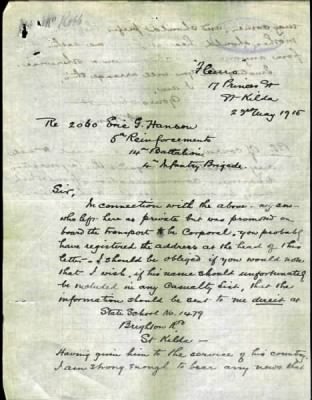 Fleurs
17 Princes St
St Kilda
29th May 1915
Re 2060 Eric G. Hanson
5th Reinforcements
14th Battalion
4th Infantry Brigade
Sir,
In connection with the above - my son
who left here as private but was promoted on
board the transport to be Corporal, you probably
have registered the address at the head of this
letter - I should be obliged if you would note
that I wish, if his name should unfortunately
be included in any Casualty List, that the
information should be sent to me direct at
State School No. 1479
Brighton Rd
St Kilda -
Having given him to the service of his country
I am strong enough to bear any news that